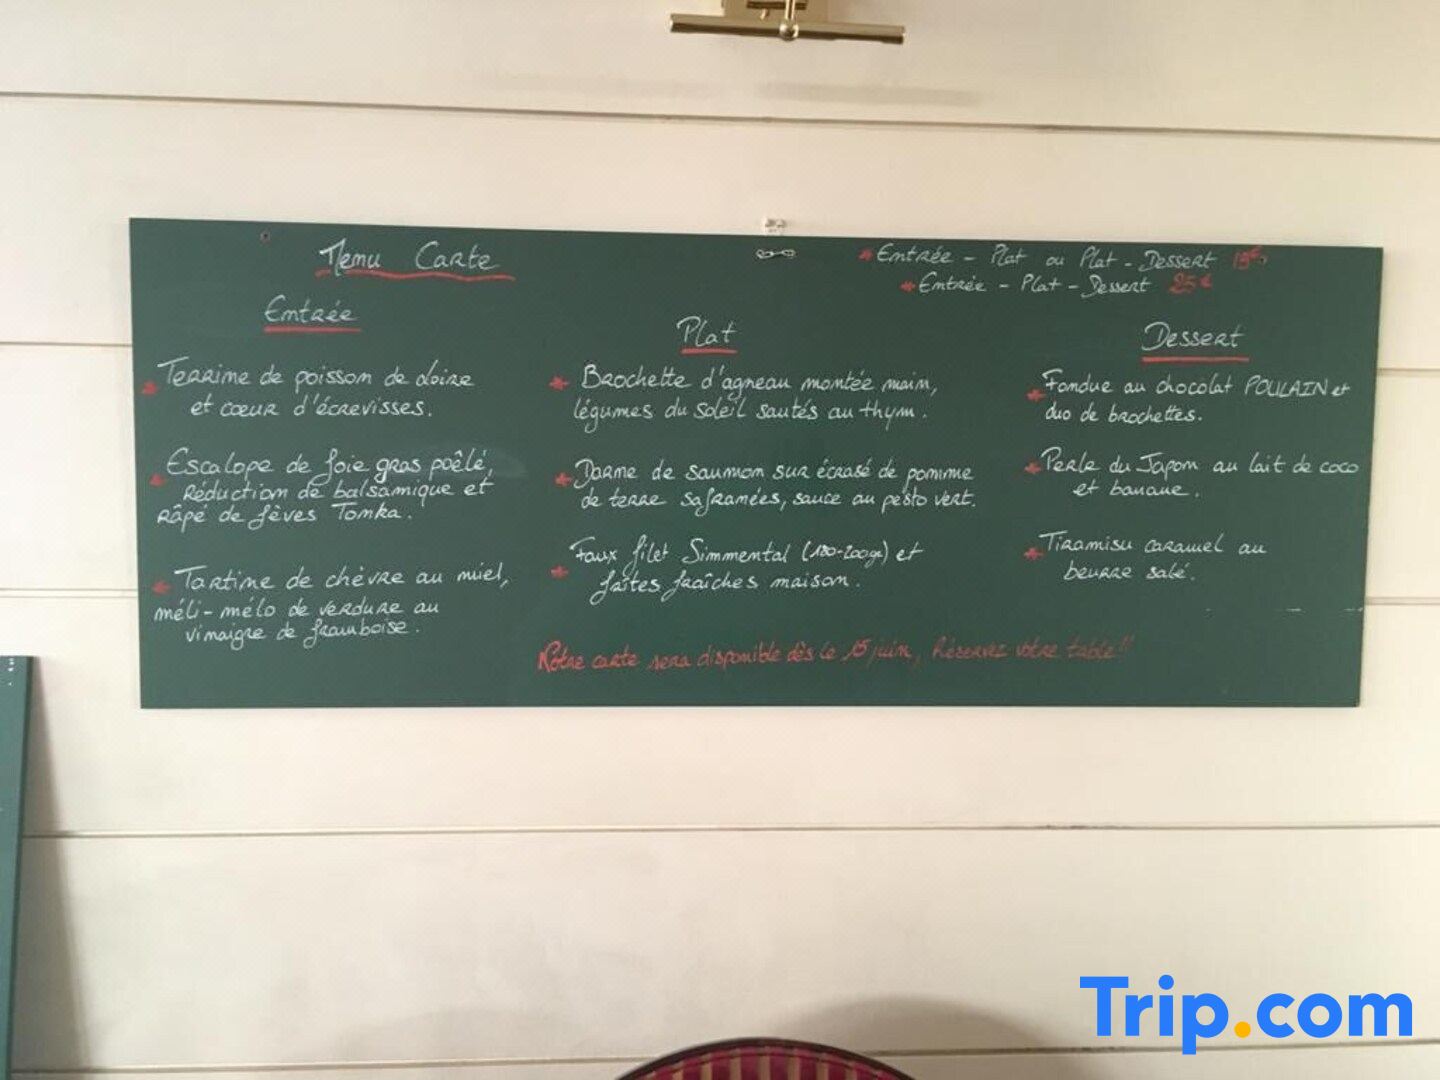 Menu Carte
* Entrée - Plat ou Plat - Dessert
* Entrée - Plat - Dessert 25€
Entrée
* Terrine de poisson de Loire
et cœur d'écrevisses.
* Escalope de foie gras poêlé,
Réduction de balsamique et
râpé de fèves Tonka.
* Tartine de chèvre au miel,
méli-mélo de verdure au
vinaigre de framboise.
Plat
* Brochette d'agneau montée main,
légumes du soleil sautés au thym.
* Darne de saumon sur écrasé de pomme
de terre safranées, sauce au pesto vert.
* Faux filet Simmental (180-200gr) et
frites fraîches maison.
Dessert
* Fondue au chocolat POULAIN et
duo de brochettes.
* Perle du Japon au lait de coco
et banane.
* Tiramisu caramel au
beurre salé.
Notre carte sera disponible dès le 15 juin, Réservez votre table!!
Trip.com